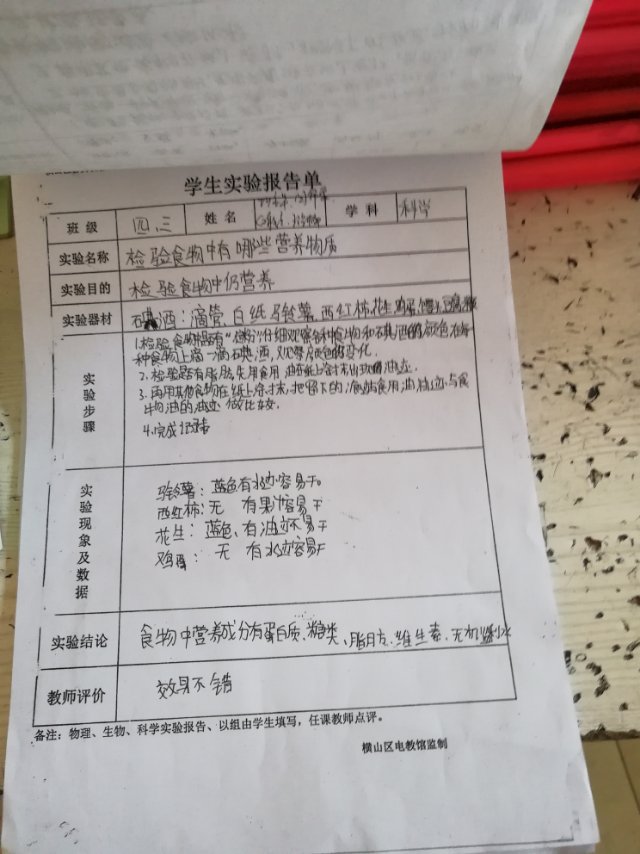 学生实验报告单
班级 四.三 姓名 学科 科学
实验名称 检验食物中有哪些营养物质
实验目的 检验食物中仍营养
实验器材 碘酒：滴管，白纸，马铃薯，西红柿，花生，鸡蛋
实验步骤
1.检验食物中是否有"淀粉"仔细观察各种食物和碘酒的颜色在每
种食物上滴一滴碘酒，观察颜色的变化．
2.检验是否有脂肪，先用食用油在纸上涂抹出现油迹．
3.再用其他食物在纸上涂抹，把留下的
油的油迹做比较．
4.完成记录
实验现象及数据
马铃薯：蓝色有水迹容易干。
西红柿：无 有果汁容易干
花生：蓝色、有油迹不易干
鸡蛋：无 有水迹容易干
实验结论 食物中营养成分有蛋白质、糖类、脂肪、维生素、无机盐和水
教师评价 效果不错
备注：物理、生物、科学实验报告、以组由学生填写，任课教师点评。
横山区电教馆监制